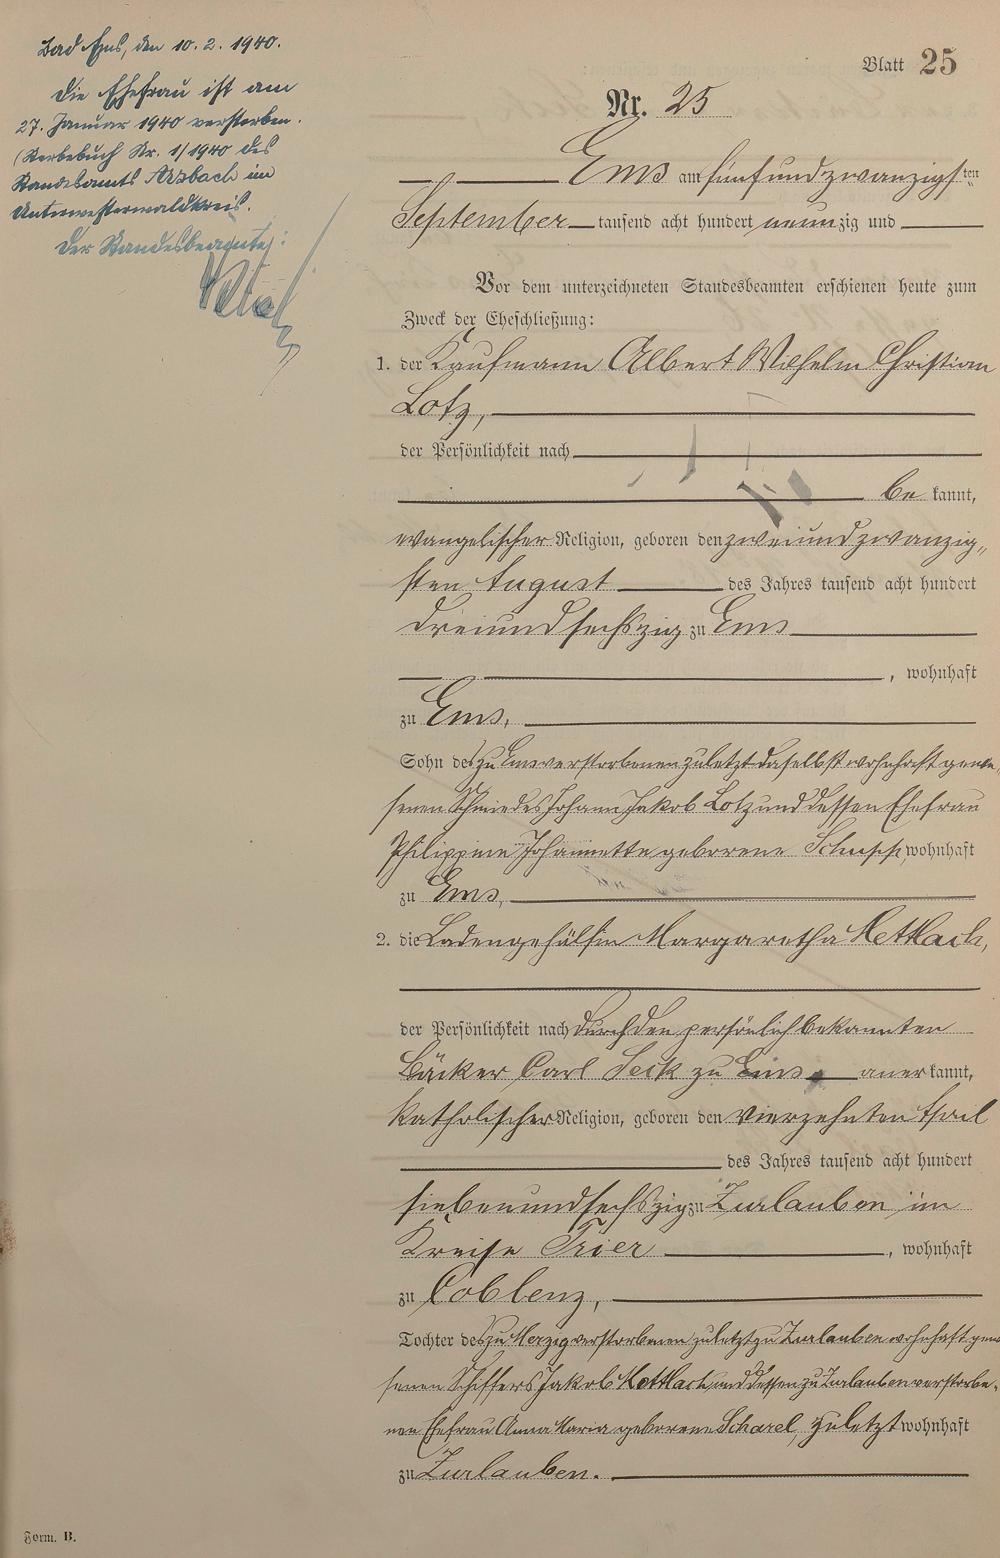 Bad Ems, den 10. 2. 1940.
Die Ehefrau ist am
27. Januar 1940 verstorben.
(Sterbebuch Nr. 1/1940 des
Standesamts Arzbach im
Unterwesterwaldkreis.
Der Standesbeamte:
Blatt 25
Nr. 25
Ems am fünfundzwanzigsten
September tausend acht hundert neunzig und
Vor dem unterzeichneten Standesbeamten erschienen heute zum
Zweck der Eheschließung:
1. der Kaufmann Albert Wilhelm Christian
Lotz,
der Persönlichkeit nach
be kannt,
evangelischer Religion, geboren den zweiundzwanzig„
sten August des Jahres tausend acht hundert
dreiundsechszig zu Ems
, wohnhaft
zu Ems,
Sohn des zu Ems verstorbenen zuletzt daselbst wohnhaft gewe„
senen Schmiedes Johann Jakob Lotz und dessen Ehefrau
Philippine Johannette geborene Schupp, wohnhaft
zu Ems,
2. die Ladengehülfin Margaretha Mettlach,
der Persönlichkeit nach durch den persönlich bekannten
Bäcker Carl Seik zu Ems anerkannt,
katholischer Religion, geboren den vierzehnten April
des Jahres tausend acht hundert
siebenundsechszig zu Zurlauben im
Kreise Trier , wohnhaft
zu Coblenz,
Tochter des zu Merzig verstorbenen zuletzt zu Zurlauben wohnhaft gewe
senen Schiffers Jakob Mettlach und dessen zu Zurlauben verstorbe„
nen Ehefrau Anna Maria geborene Scharel, zuletzt wohnhaft
zu Zurlauben.
Form. B.